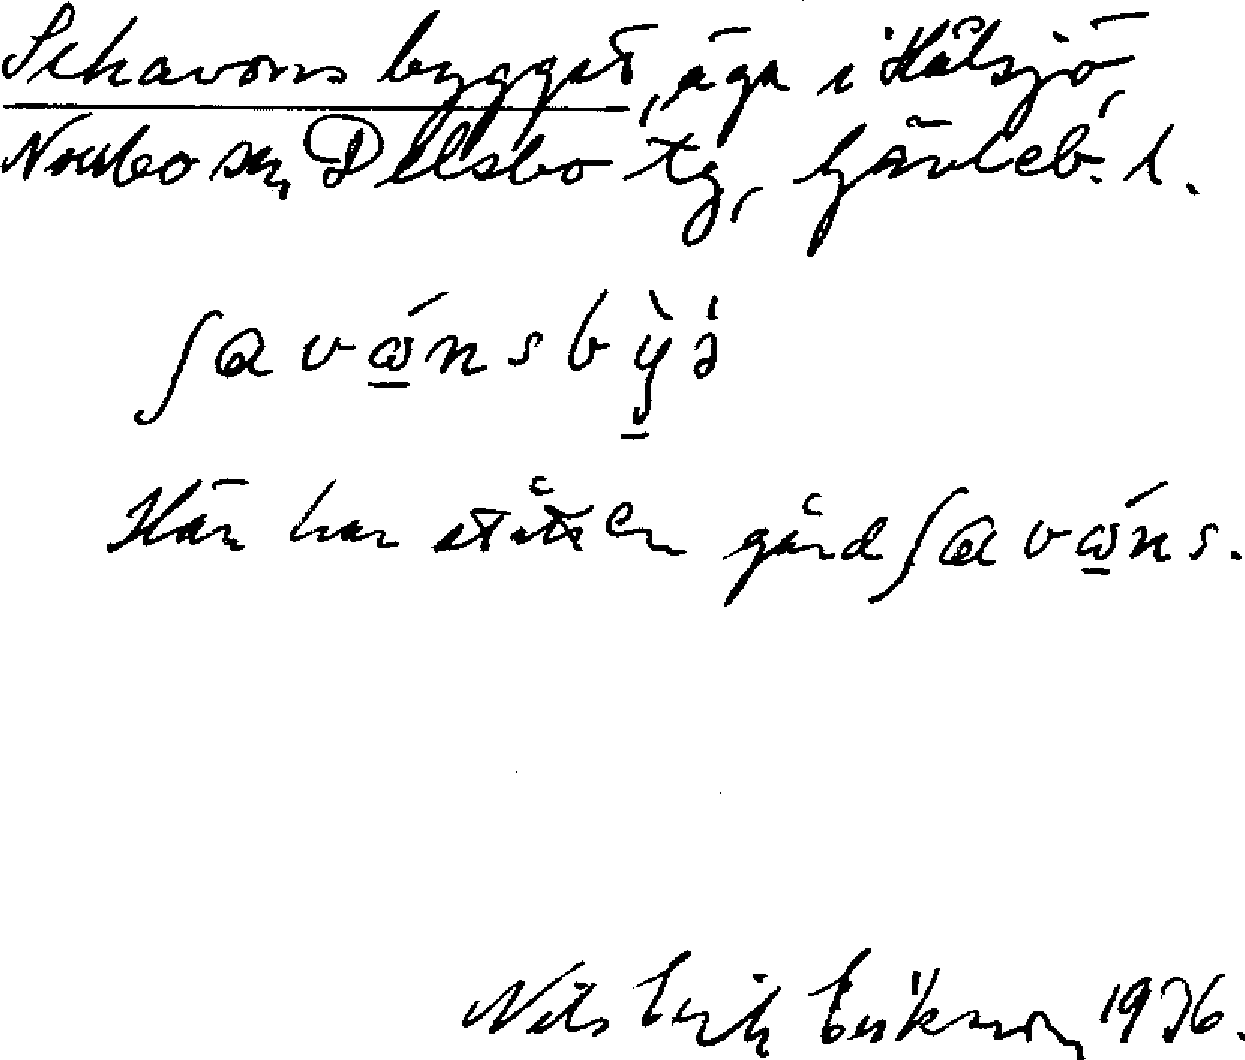 Schavons bygget, äga i Hålsjö,
Norrbo sn, Delsbo tg, Gävleb. l.
ʃɑvώ̲nsbỳ̲ə̀
Här har stått en gård ʃɑvώ̲ns.
Nils Erik Eriksson, 1936.